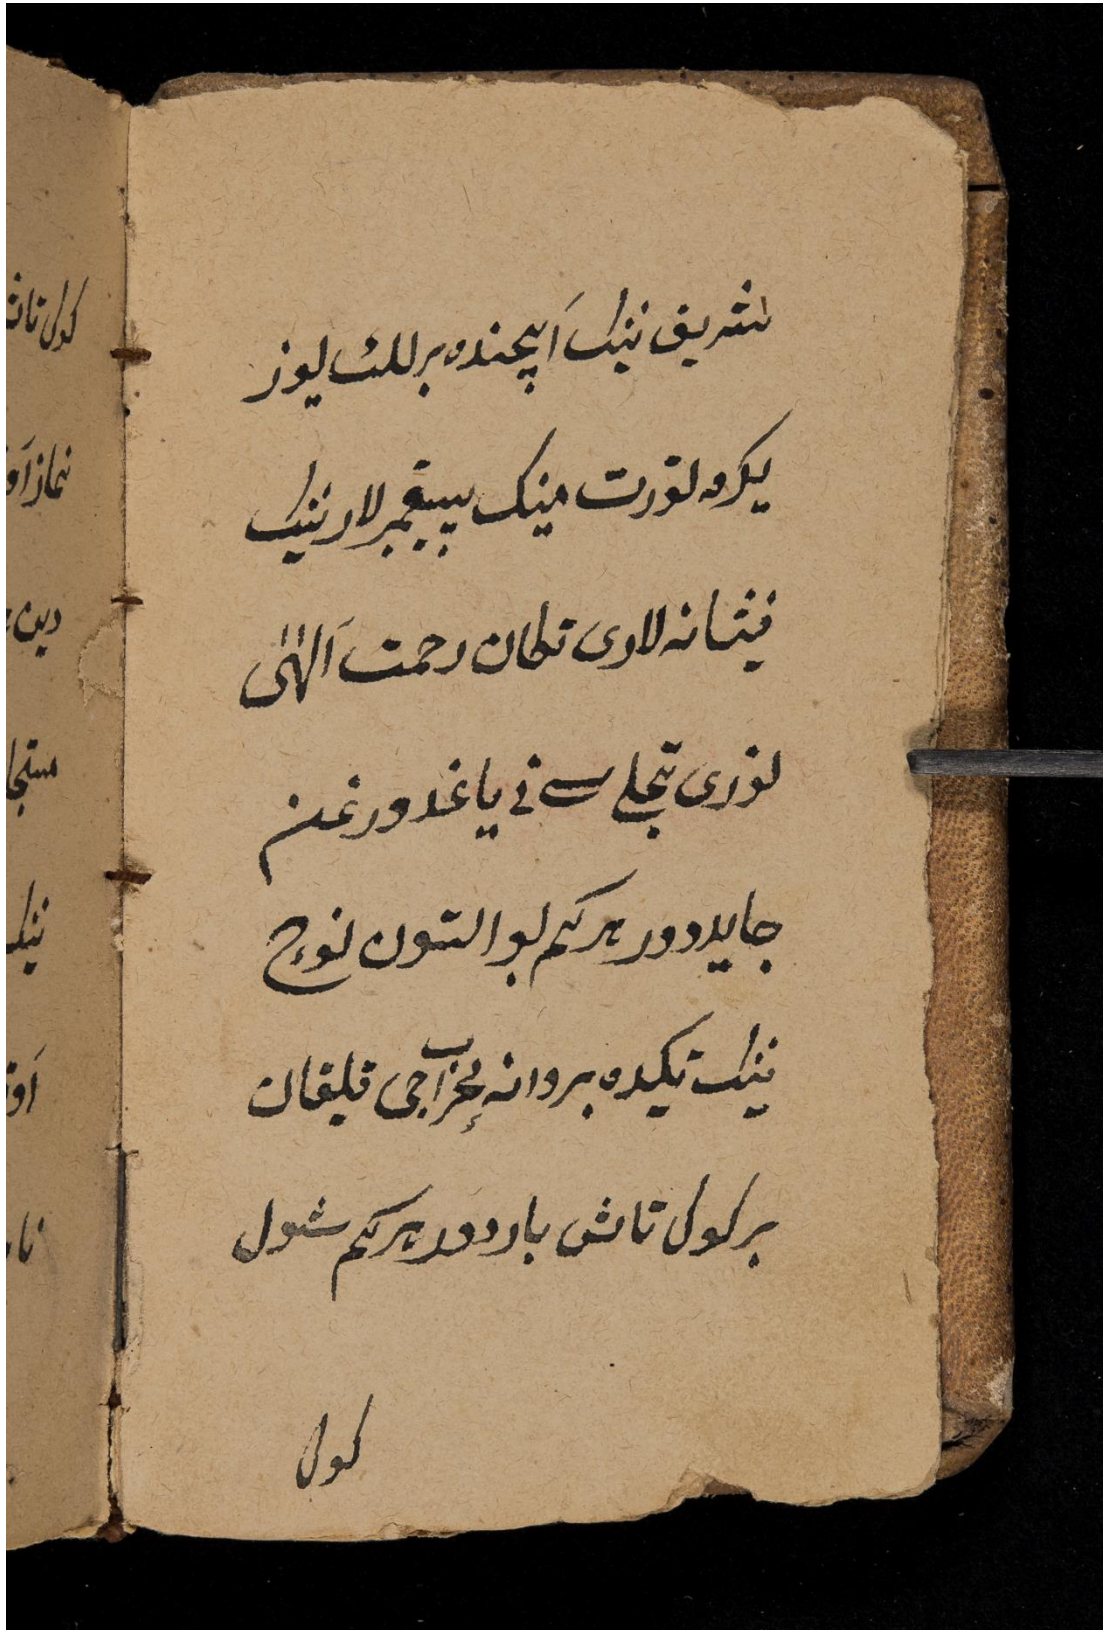 شریف نینک اَیچنده بر للک یوز
یکرمه تورت مینک پیغمبر لار نینک
نیشانه لاری تکان رحمت اَلهٰی
نوری تجلی سی نی یاغدورغن
جایدور هرکم بو التون نوچ
نینک تیکده بروانه محراجی قیلغان
بر کوک تاش باردور هرکم شول
کوک